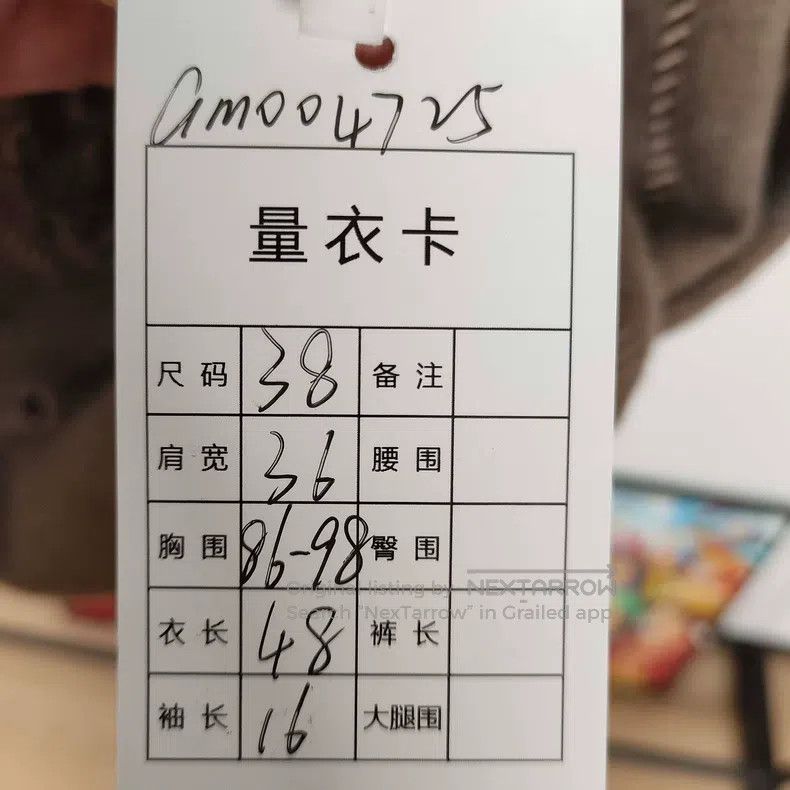 GM004725
量衣卡
尺码 38 备注
肩宽 36 腰围
胸围 86-98 臀围
Original listing by NEXTARROW
Search "NexTarrow" in Grailed app
衣长 48 裤长
袖长 16 大腿围